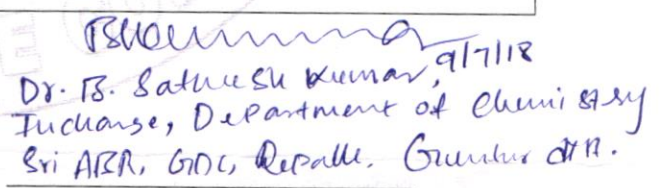 9/7/18
Dr. B. Sathish Kumar,
Incharge, Department of Chemistry
Sri ABR, GDC, Repalle. Guntur dt.